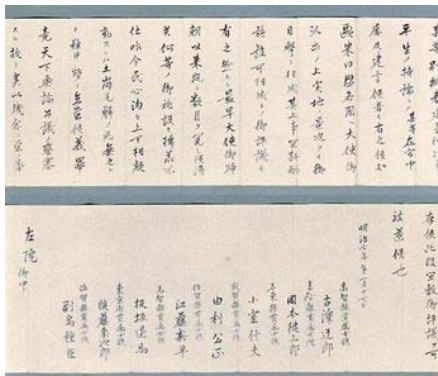 某等別紙奉建
平生ノ持論ニテ某等在官中
屡及建言候者モ有之候処
歐米同盟各国ヘ大使御
派出ノ上実地ノ景況ヲモ御
目撃ニ相成其上事宜斟酌
施設可相成トノ御評議モ
有之然ルニ最早大使御帰
朝以来既ニ数月ヲ閲シ候得
共何等ノ御施設モ拝承不
仕昨今民心洶々上下相疑
動スレハ土崩瓦解ノ兆無之ト
モ難申勢ニ立至候義畢
竟天下輿論公議ノ壅塞
スル故ト実以残念ノ至ニ奉
存候此段宜敷御評議ヲ可
被遂候也
明治七年第一月十七日
高知縣貫属士族
古澤迂郎
高知縣貫属士族
岡本健三郎
名東縣貫属士族
小室信夫
敦賀縣貫属士族
由利公正
佐賀縣貫属士族
江藤新平
高知縣貫属士族
板垣退助
東京府貫属士族
後藤象次郎
佐賀縣貫属士族
副島種臣
左院 御中